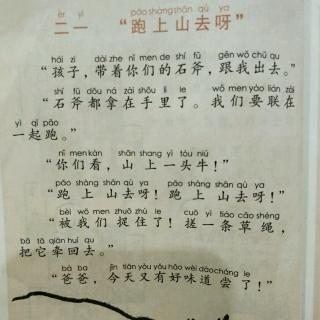 èr yī pǎo shàng shān qù ya
二一 “跑上山去呀”
hái zi dài zhe nǐ men de shí fǔ gēn wǒ chū qu
“孩子，带着你们的石斧，跟我出去。”
shí fǔ dōu ná zài shǒu lǐ le wǒ men yào lián zài
“石斧都拿在手里了。我们要联在
yì qǐ pǎo
一起跑。”
nǐ men kàn shān shang yì tóu niú
“你们看，山上一头牛！”
pǎo shàng shān qù ya pǎo shàng shān qù ya
“跑上山去呀！跑上山去呀！”
bèi wǒ men zhuō zhù le cuō yì tiáo cǎo shéng
“被我们捉住了！搓一条草绳，
bǎ tā qiān huí qu
把它牵回去。”
bà ba jīn tiān yòu yǒu hǎo wèi dào cháng le
“爸爸，今天又有好味道尝了！”